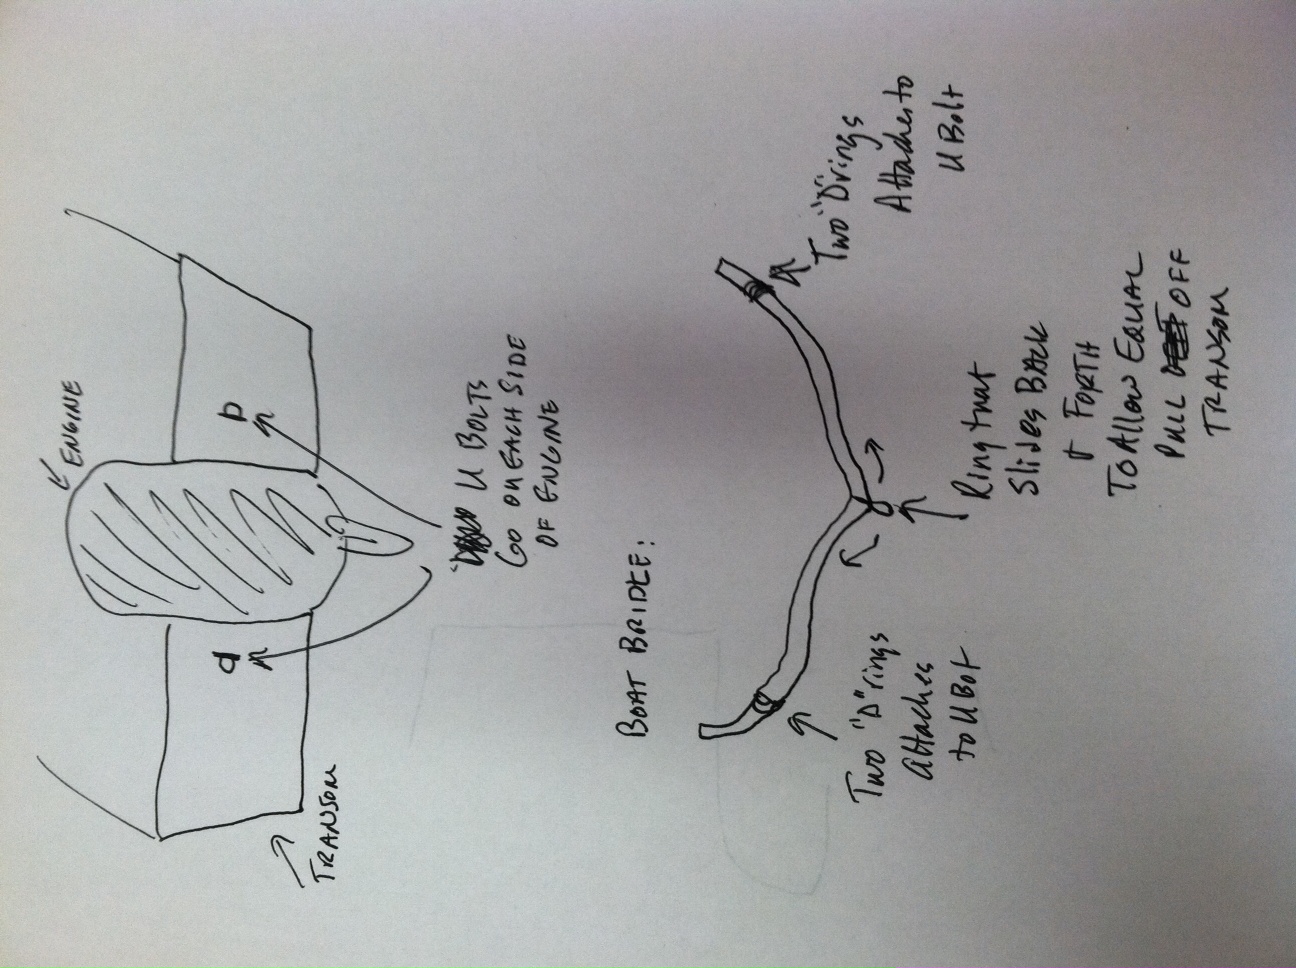 ENGINE
U BOLTS
GO ON EACH SIDE
OF ENGINE
TRANSOM
BOAT BRIDLE:
Two "D" rings
Attaches
to UBot
Two "D" rings
Attaches to
U Bolt
Ring that
Slides BACK
& FORTH
TO Allow EQUAL
PULL OFF
TRANSOM